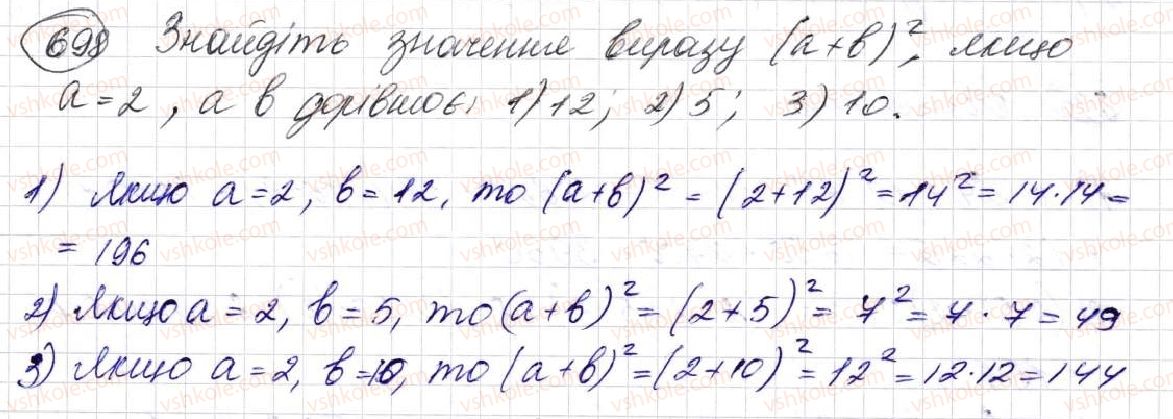 698 Знайдіть значення виразу (a+b)², якщо
a=2, а b дорівнює: 1) 12; 2) 5; 3) 10.
1) Якщо a=2, b=12, то (a+b)² = (2+12)² = 14² = 14·14 =
= 196
2) Якщо a=2, b=5, то (a+b)² = (2+5)² = 7² = 7·7 = 49
3) Якщо a=2, b=10, то (a+b)² = (2+10)² = 12² = 12·12 = 144
vshkole.com